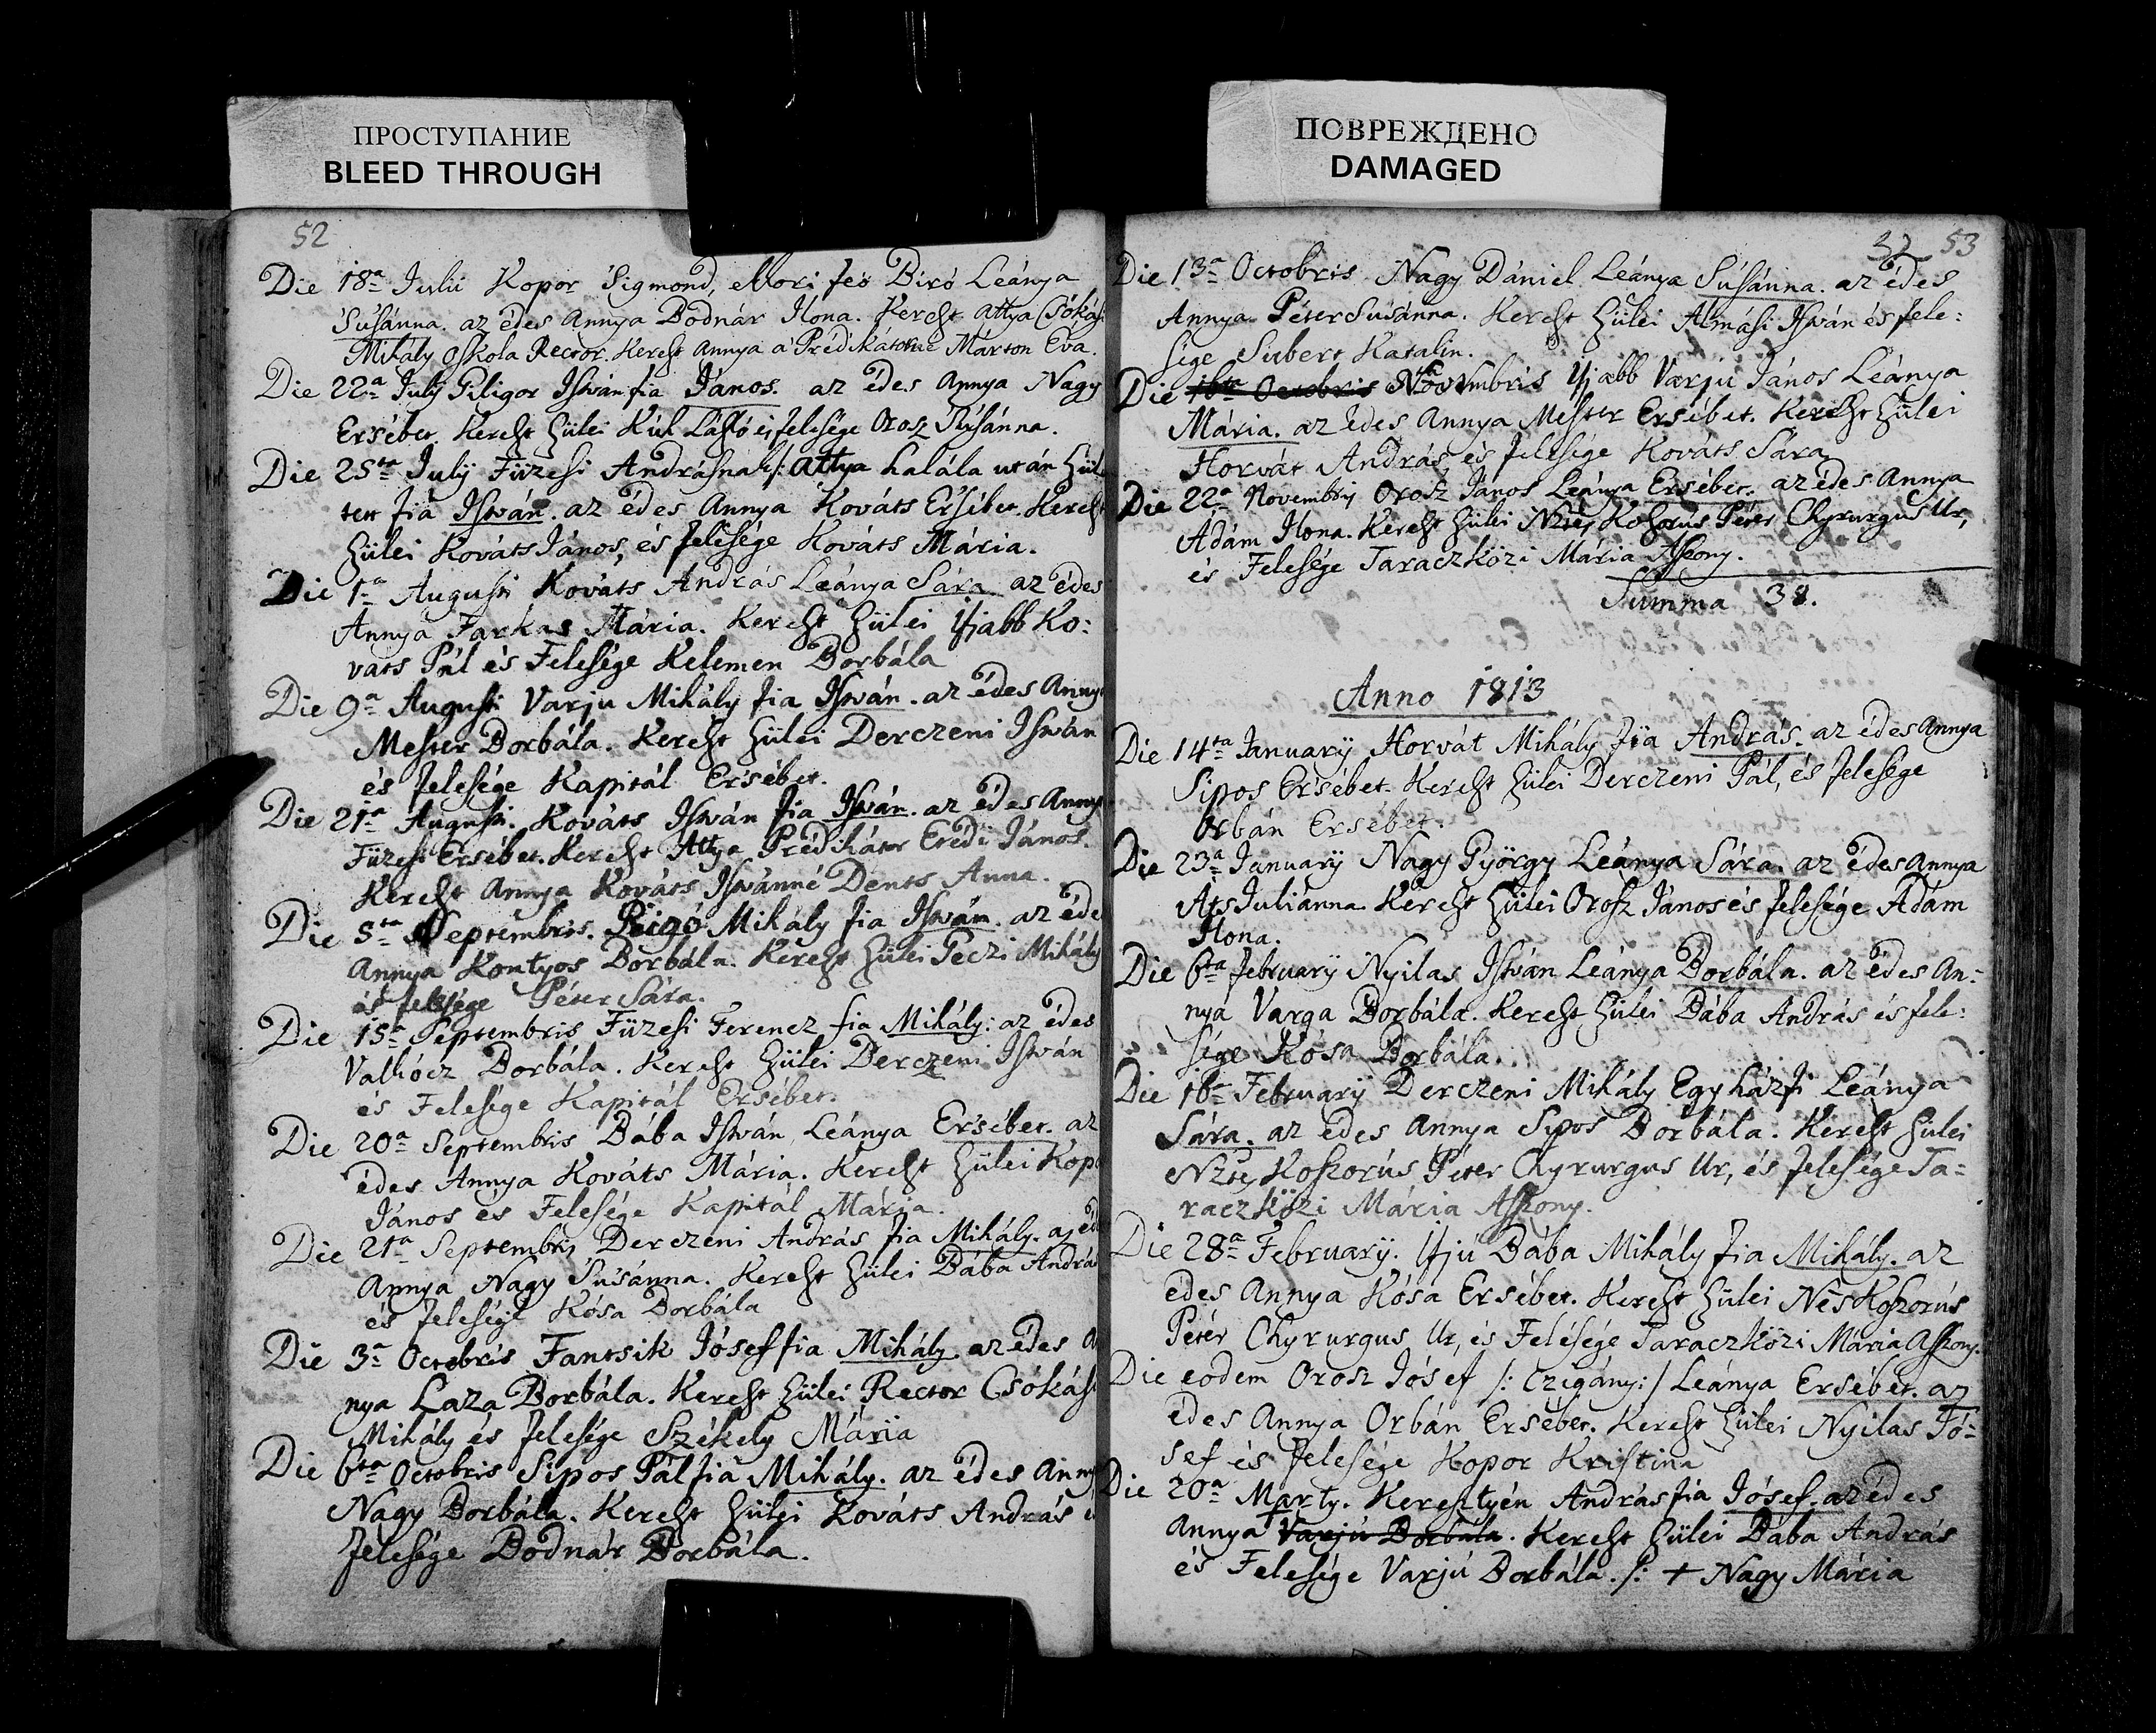 ПРОСТУПАНИЕ
BLEED THROUGH
52
Die 18a Julii Kopor Sigmond, Mori feö Biró Leánya
Súsánna. az édes Annya Bodnár Ilona. Kereszt Attya Csókási
Mihály Oskola Rector. Kereszt Annya a' Prédikátorné Márton Éva.
Die 22a Julÿ Piligor István fia János. az édes Annya Nagy
Ersébet. Kereszt Szülei Kúk és felesége Orosz Súsánna.
Die 25ta Julÿ Füzesi Andrásnak /: Attya halála után Szül
tett fia István. az édes Annya Kováts Ersébet. Kereszt
Szülei Kováts János, és felesége Kováts Mária.
Die 1a Augusti Kováts András Leánya Sára az édes
Annya Farkas Mária. Kereszt Szülei Ifjabb Ko:
vats Pál és Felesége Kelemen Borbála
Die 9a Augusti Varju Mihály fia István. az édes Annya
Mester Borbála. Kereszt Szülei Derczeni István
és felesége Kapitál Ersébet.
Die 21a Augusti. Kováts István fia István. az édes Annya
Füzesi Ersébet. Kereszt Attya Prédikátor Erédi János.
Kereszt Annya Kováts Istvánné Dents Anna.
Die 5ta Septembris. Rigó Mihály fia István. az éde
Annya Kontyos Borbála. Kereszt Szülei Péczi Mihály
és felesége Péter Sára.
Die 15a Septembris Füzesi Ferencz fia Mihály: az édes
Valkócz Borbála. Kereszt Szülei Derczeni István
és Felesége Kapitál Ersébet.
Die 20a Septembris Bába István Leánya Ersébet. az
édes Annya Kováts Mária. Kereszt Szülei Kopo
János és Felesége Kapitál Mária.
Die 21a Septembris Derczeni András fia Mihály. az éd
Annya Nagy Susánna. Kereszt Szülei Bába András
és felesége Kósa Borbála
Die 3a Octobris Fantsik Jósef fia Mihály az édes A
nya Laza Borbála. Kereszt Szülei Rector Csókási
Mihály és felesége Székely Mária
Die 6ta Octobris Sipos Pál fia Mihály. az édes Anny
Nagy Borbála. Kereszt Szülei Kováts András é
felesége Bodnár Borbála.
ПОВРЕЖДЕНО
DAMAGED
53
Die 13a Octobris Nagy Dániel Leánya Súsánna. az édes
Annya Péter Súsánna. Kereszt Szülei Almási István és fele:
sége Subert Katalin.
Die 16ta Octobris Novembris Ifjabb Varjú János Leánya
Mária. az édes Annya Mester Ersébet. Kereszt Szülei
Horvát András, és felesége Kováts Sára
Die 22a Novembris Orosz János Leánya Ersébet. az édes Annya
Ádám Ilona. Kereszt Szülei Nztes Koszorús Péter Chyrurgus Ur,
és Felesége Taraczközi Mária Aszony.
Summa 38.
Anno 1813
Die 14ta Januarÿ Horvát Mihály fia András. az édes Annya
Sipos Ersébet. Kereszt Szülei Derczeni Pál, és felesége
Orbán Ersébet.
Die 23a Januarÿ Nagy György Leánya Sára. az édes Annya
Áts Juliánna Kereszt Szülei Orosz János és felesége Ádám
Ilona.
Die 6ta Februarÿ Nyilas István Leánya Borbála. az édes An-
nya Varga Borbála. Kereszt Szülei Bába András és fele:
sége Kósa Borbála.
Die 16a Februarÿ Derczeni Mihály Egyházfi Leánya
Sára. az édes Annya Sipos Borbála. Kereszt Szülei
Nztes Koszorús Péter Chyrurgus Ur, és felesége Ta=
raczközi Mária Aszony.
Die 28a Februarÿ. Ifjú Bába Mihály fia Mihály. az
édes Annya Kósa Ersébet. Kereszt Szülei Nes Koszorús
Péter Chyrurgus Ur, és Felésége Taraczközi Mária Aszony.
Die eodem Orosz Jósef /: Czigány:/ Leánya Ersébet. az
édes Annya Orbán Ersébet. Kereszt Szülei Nyilas Jó-
sef és felesége Kopor Kristina
Die 20a Marty. Keresztyén András fia Jósef. az édes
Annya + Varjú Borbála. Kereszt Szülei Bába András
és Felesége Varjú Borbála. /: + Nagy Mária